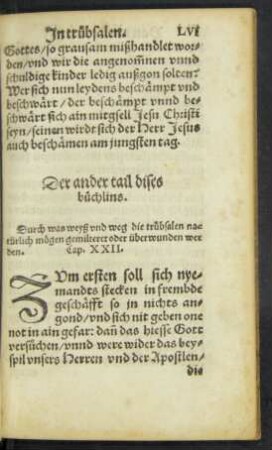 In trübsalen. LVI
Gottes/so grausam mißhandlet wor-
den/vnd wir die angenom̃nen vnnd
schuldige kinder ledig außgon solten?
Wer sich nun leydens beschämpt vnd
beschwärt/der beschämpt vnnd be-
schwärt sich ain mitgsell Jesu Christi
seyn/seinen wirdt sich der Herr Jesus
auch beschämen am jungsten tag.
Der ander tail dises
büchlins.
Durch was weyß vnd weg die trübsalen na-
türlich mögen gemilteret oder überwunden wer
den. Cap. XXII.
ZVm ersten soll sich nye-
mandts stecken in frembde
geschäfft so in nichts an-
gond/vnd sich nit geben one
not in ain gefar: dañ das hiesse Gott
versüchen/vnnd were wider das bey-
spil vnsers Herren vnd der Apostlen/
die